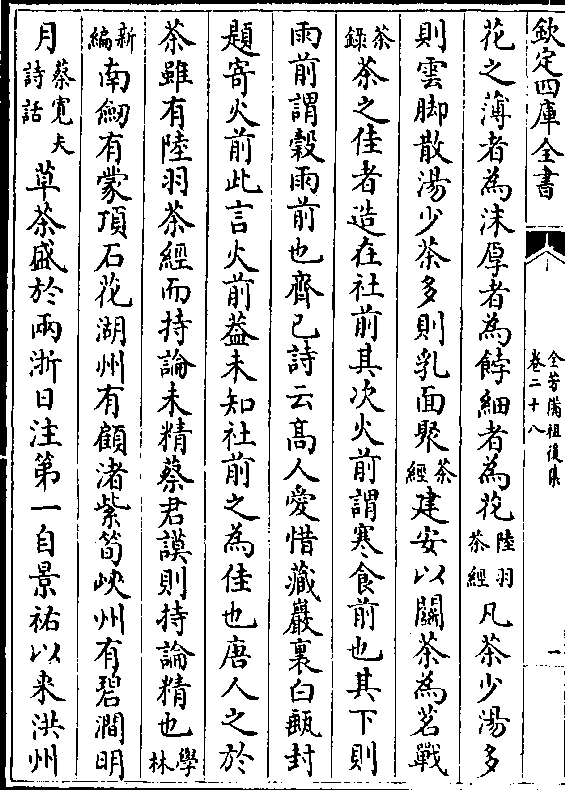 欽定四庫全書
全芳備祖後集
卷二十八
一
花之薄者為沫厚者為餑細者為花陸羽茶經凡茶少湯多
則雲脚散湯少茶多則乳面聚茶經建安以鬬茶為茗戰
茶錄茶之佳者造在社前其次火前謂寒食前也其下則
雨前謂榖雨前也齊己詩云髙人愛惜藏巖裏白甀封
題寄火前此言火前葢未知社前之為佳也唐人之於
茶雖有陸羽茶經而持論未精蔡君謨則持論精也學林
新編南劒有蒙頂石花湖州有顧渚紫筍峽州有碧澗明
月蔡寛夫詩話草茶盛於兩浙日注第一自景祐以来洪州